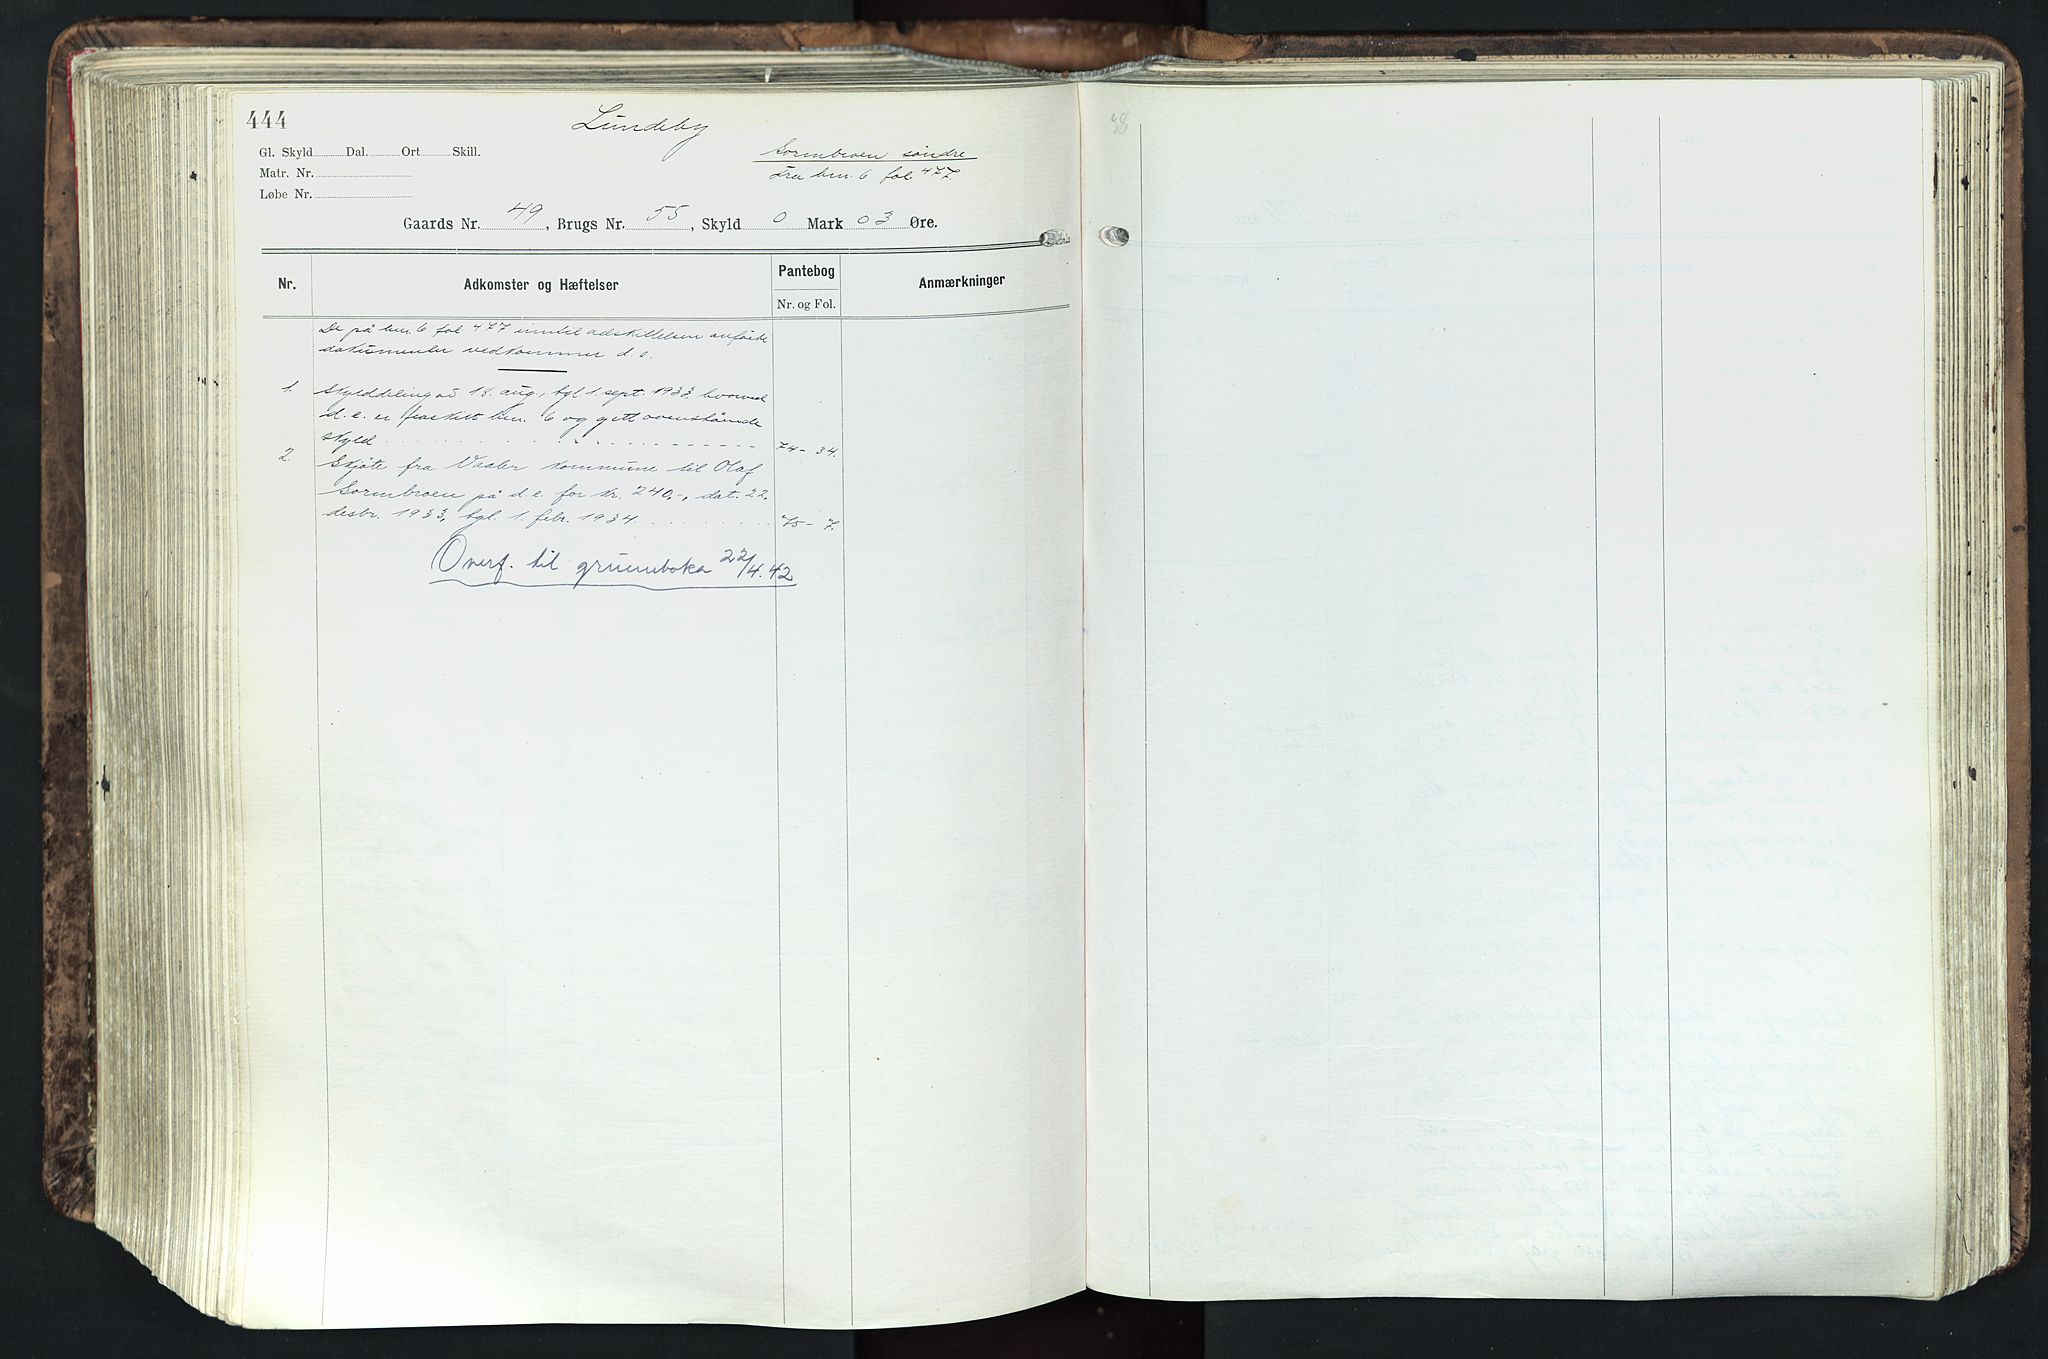 444
Lundeby
Gl. Skyld Dal. Ort Skill.
Matr. Nr.
Løbe Nr.
Sormbroen søndre
Fra bnr. 6 fol 477.
Gaards Nr. 49, Brugs Nr. 55, Skyld 0 Mark 03 Øre.
Nr. Adkomster og Hæftelser Pantebog Anmærkninger
Nr. og Fol.
De på bnr. 6 fol. 477 inntil adskillelsen anførte
dokumenter vedkommer d. e.
1. Skylddeling av 18. aug., tgl. 1. sept. 1933 hvorved
d. e. er fraskilt bnr. 6 og gitt ovenstående
skyld 74 - 34.
2. Skjøte fra Vaaler kommune til Olaf
Sormbroen på d. e. for kr. 240,-, dat. 22.
desbr. 1933, tgl. 1. febr. 1934 75 - 7.
Overf. til grunnboka 22/4.42
38